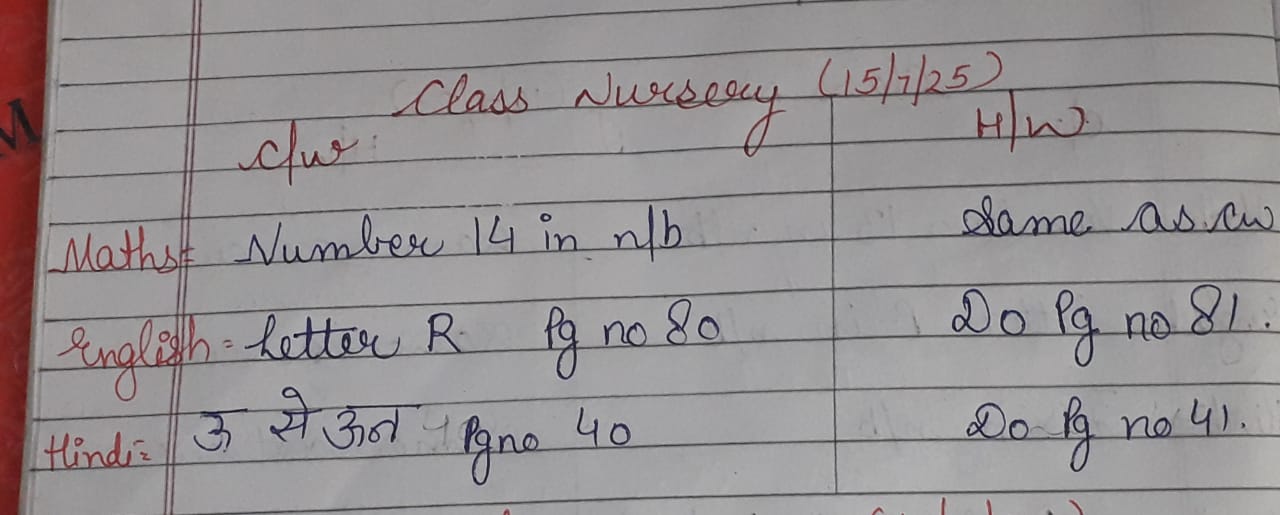 Class Nursery (15/7/25)
C/w H/W
Maths= Number 14 in n/b Same as cw
English = Letter R Pg no 80 Do Pg no 81.
Hindi= ऊ से ऊन Pg no 40 Do Pg no 41.